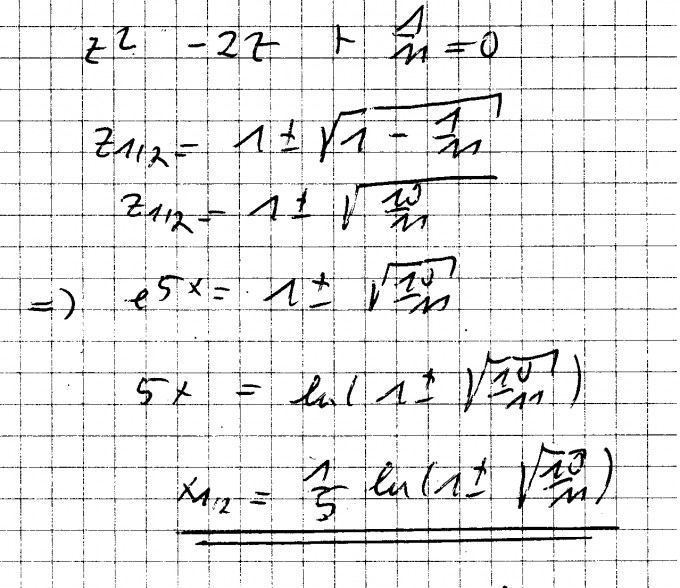 z² - 2z + 1/11 = 0
z₁,₂ = 1 ± √(1 - 1/11)
z₁,₂ = 1 ± √(10/11)
=> e^5x = 1 ± √(10/11)
5x = ln(1 ± √(10/11))
x₁,₂ = 1/5 ln(1 ± √(10/11))